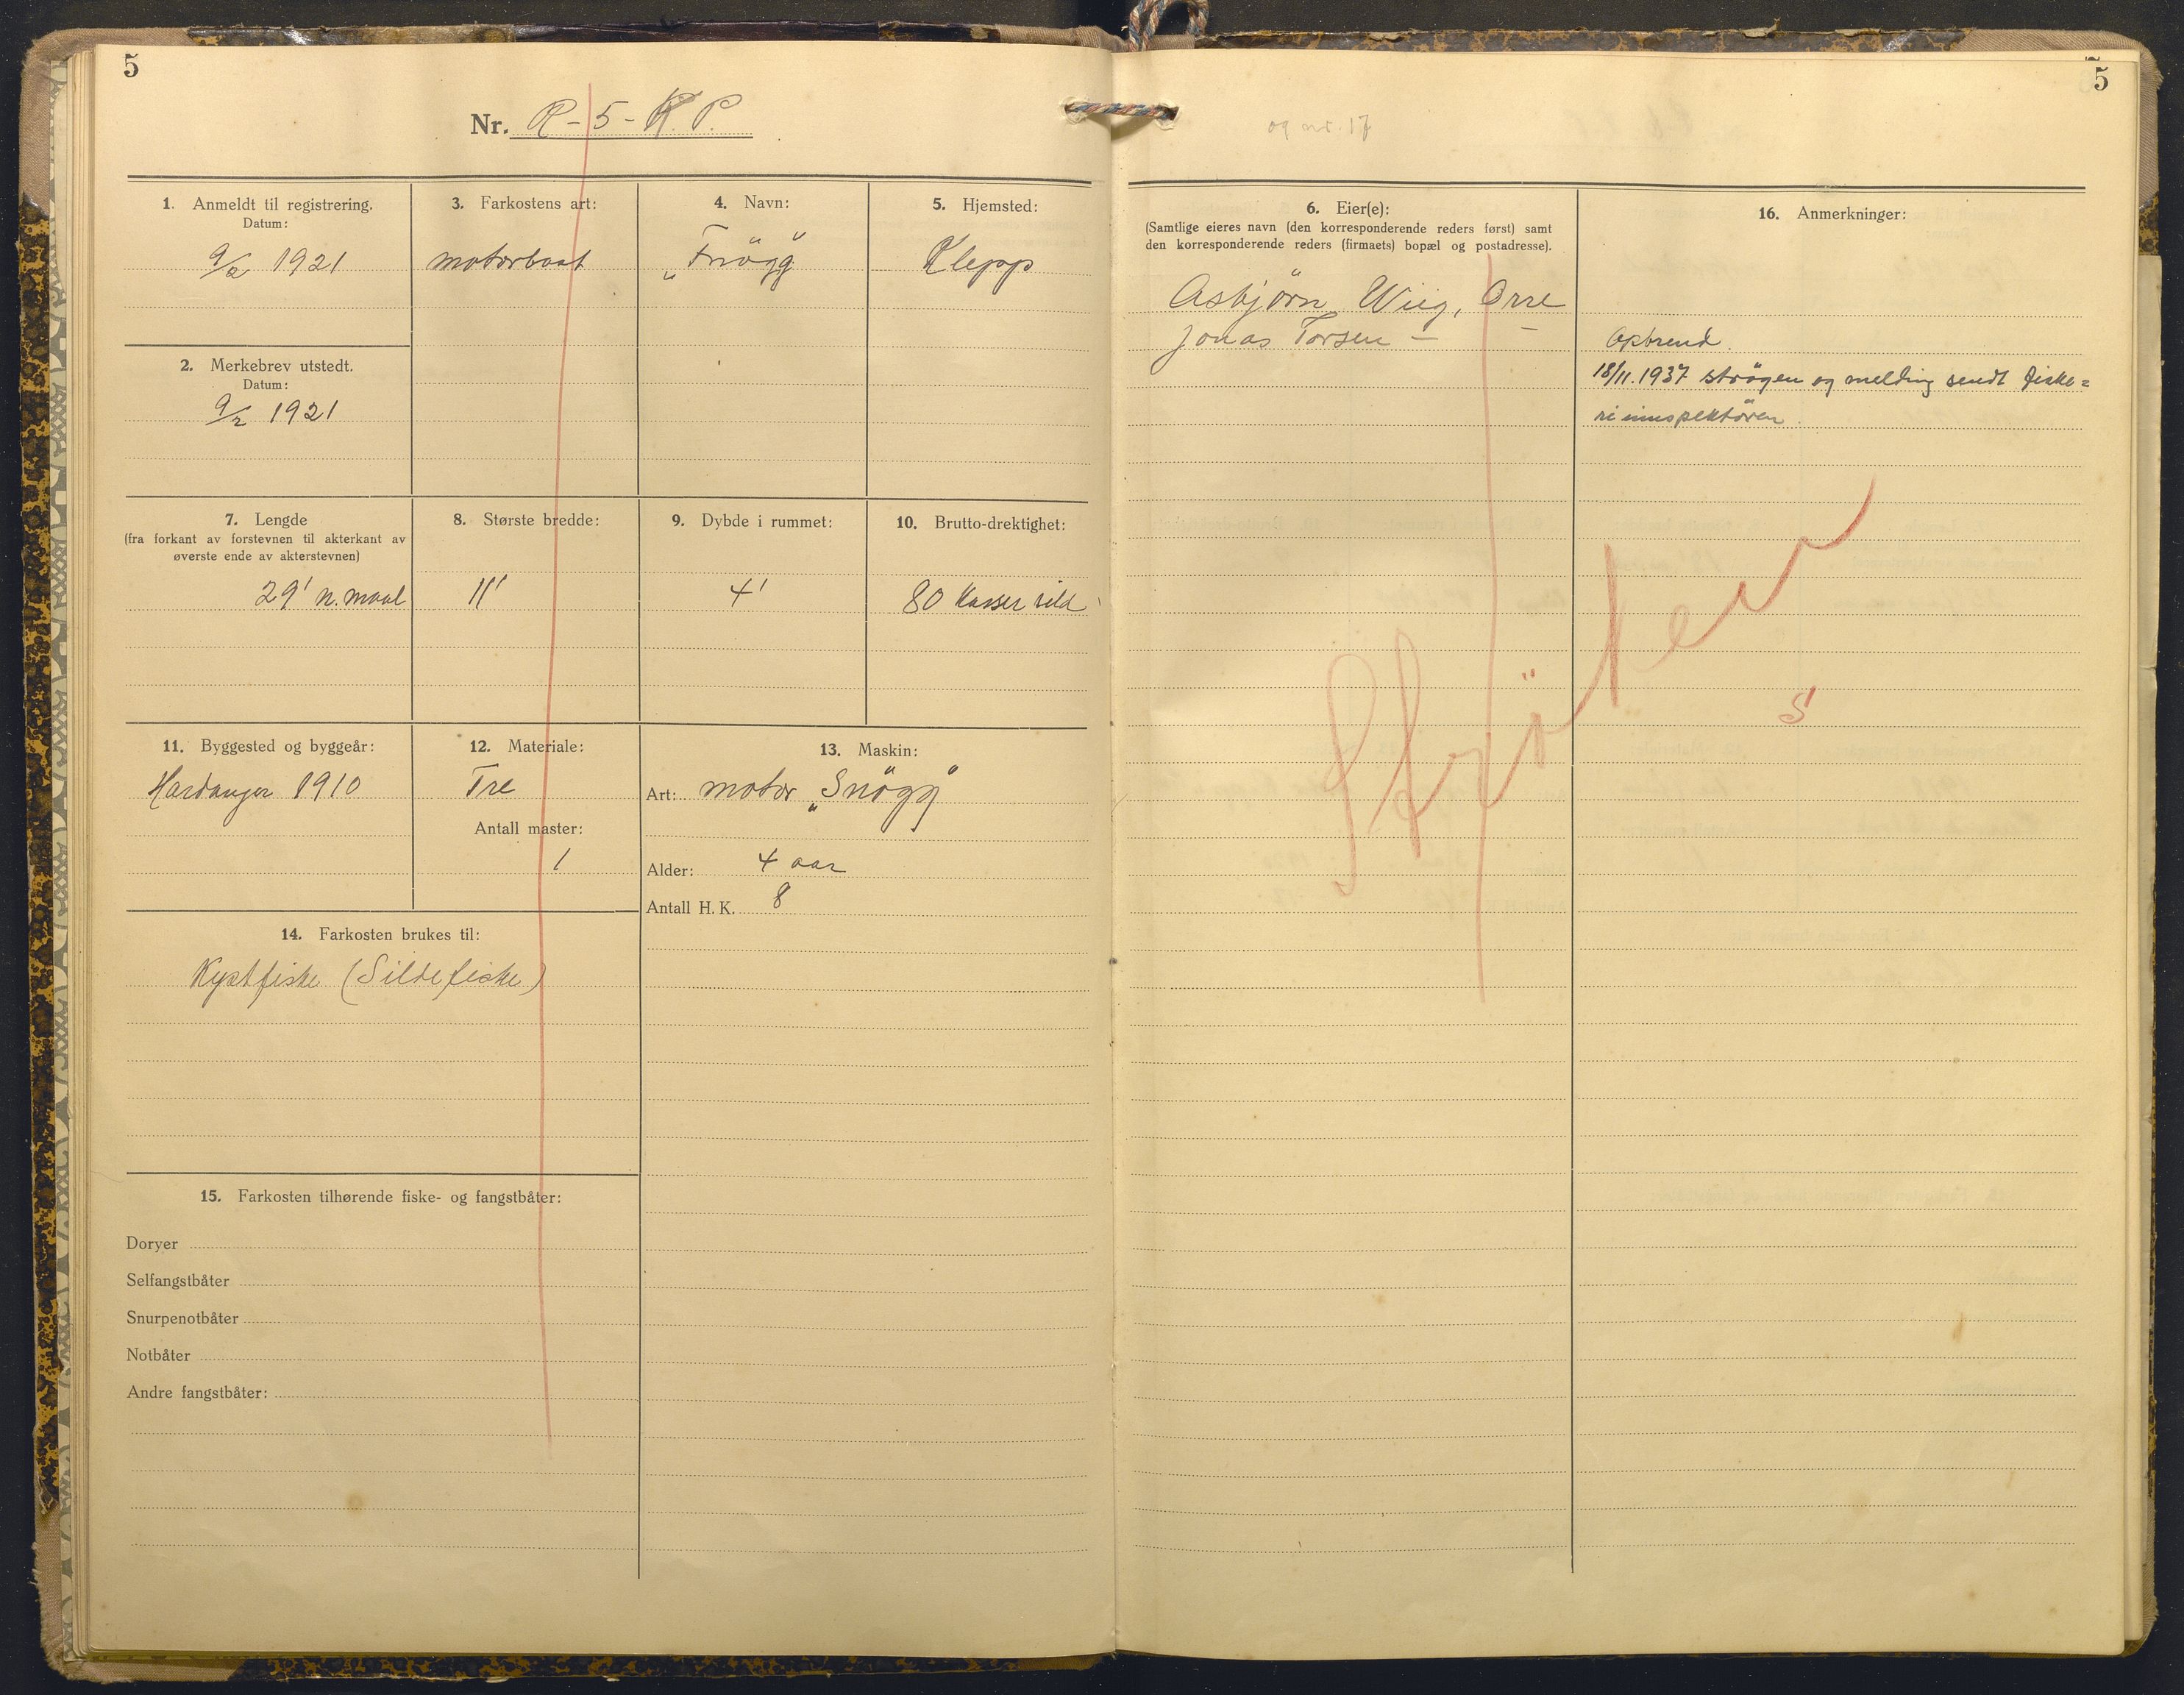 5
Nr. R-5-K.P.
1. Anmeldt til registrering.
Datum:
9/2 1921
2. Merkebrev utstedt.
Datum:
9/2 1921
3. Farkostens art:
motorbaat
4. Navn:
5. Hjemsted:
Klepp
7. Lengde
(fra forkant av forstevnen til akterkant av
øverste ende av akterstevnen)
29' n. maal
8. Største bredde:
11'
9. Dybde i rummet:
4'
10. Brutto-drektighet:
80 kasser sild
11. Byggested og byggeår:
Hardanger 1910
12. Materiale:
Tre
Antall master:
1
13. Maskin:
Art: motor „Snögg"
Alder: 4 aar
Antall H. K. 8
14. Farkosten brukes til:
Kystfiske (Sildefiske)
15. Farkosten tilhørende fiske- og fangstbåter:
Doryer
Selfangstbåter
Snurpenotbåter
Notbåter
Andre fangstbåter:
5
og nr. 17
6. Eier(e):
(Samtlige eieres navn (den korresponderende reders først) samt
den korresponderende reders (firmaets) bopæl og postadresse).
Asbjörn Wiig, Orre
Jonas Torsen — —
16. Anmerkninger:
Opbrend.
18/11.1937 strögen og melding sendt fiske=
riinspektören.
Ströken
S